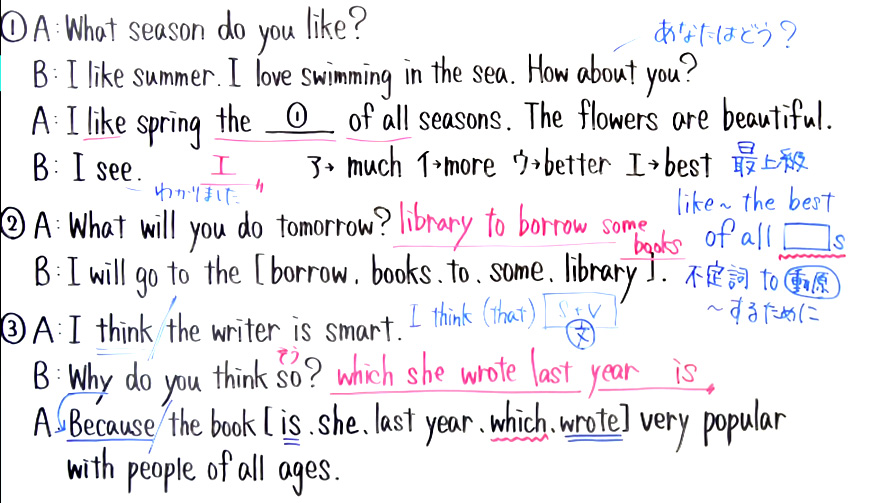 ① A: What season do you like?
あなたはどう?
B: I like summer. I love swimming in the sea. How about you?
A: I like spring the ① of all seasons. The flowers are beautiful.
B: I see. エ ア→ much イ→more ウ→better エ→best 最上級
わかりました
like~ the best
of all □s
② A: What will you do tomorrow? library to borrow some
books
B: I will go to the [borrow. books. to. some. library].
不定詞 to 動原
~するために
③ A: I think the writer is smart. I think (that) S+V
文
そう
B: Why do you think so? which she wrote last year is
A: Because the book [is. she. last year. which. wrote] very popular
with people of all ages.